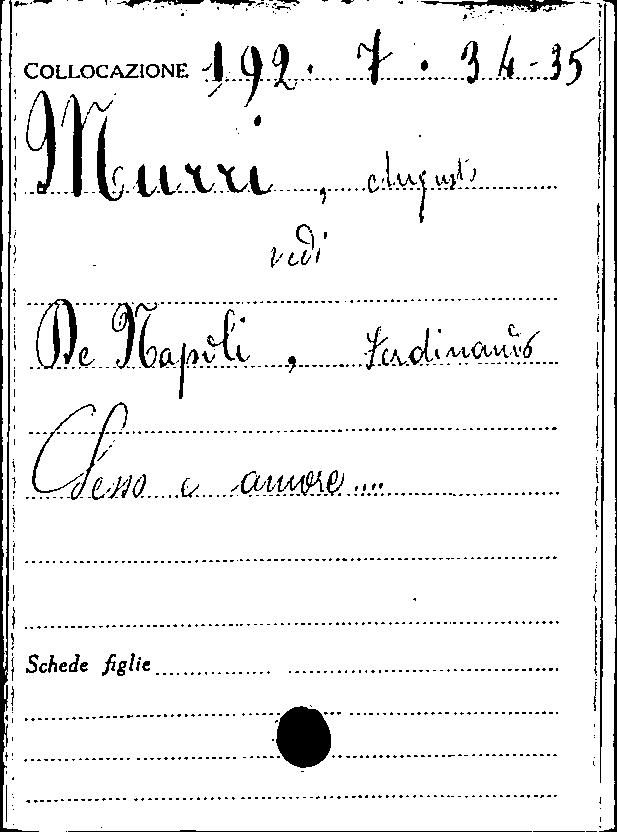 COLLOCAZIONE 192. 7. 34-35
Murri, Augusto
vedi
De Napoli, Ferdinando
Sesso e amore....
Schede figlie